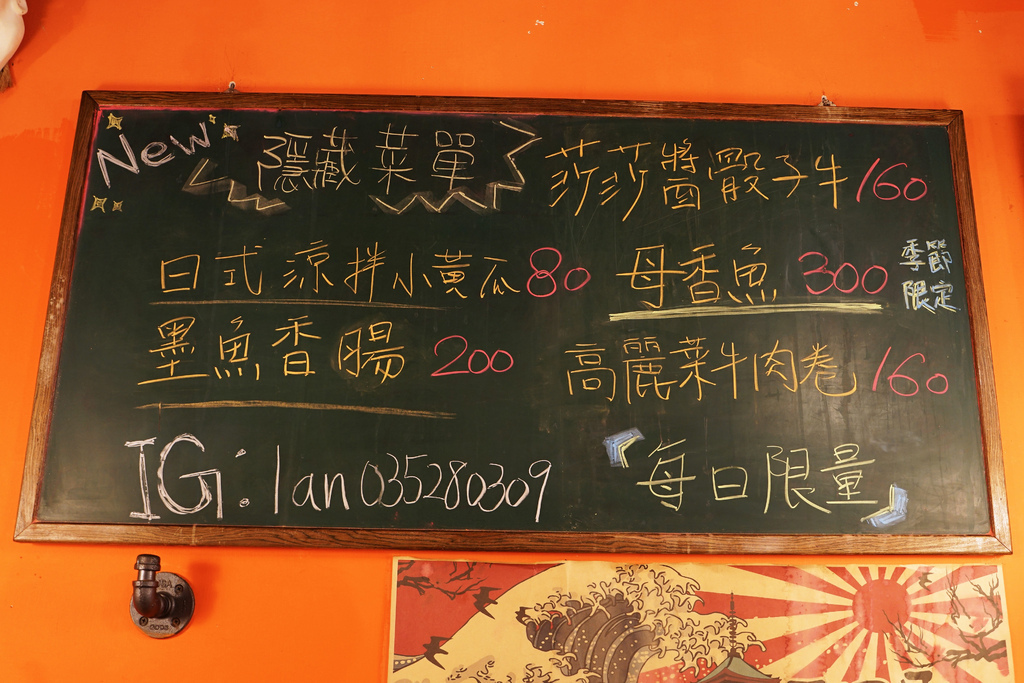 New 隱藏菜單
莎莎醬骰子牛 160
日式涼拌小黃瓜 80
母香魚 300 季節限定
墨魚香腸 200
高麗菜牛肉卷 160
IG: lan035280309
「每日限量」